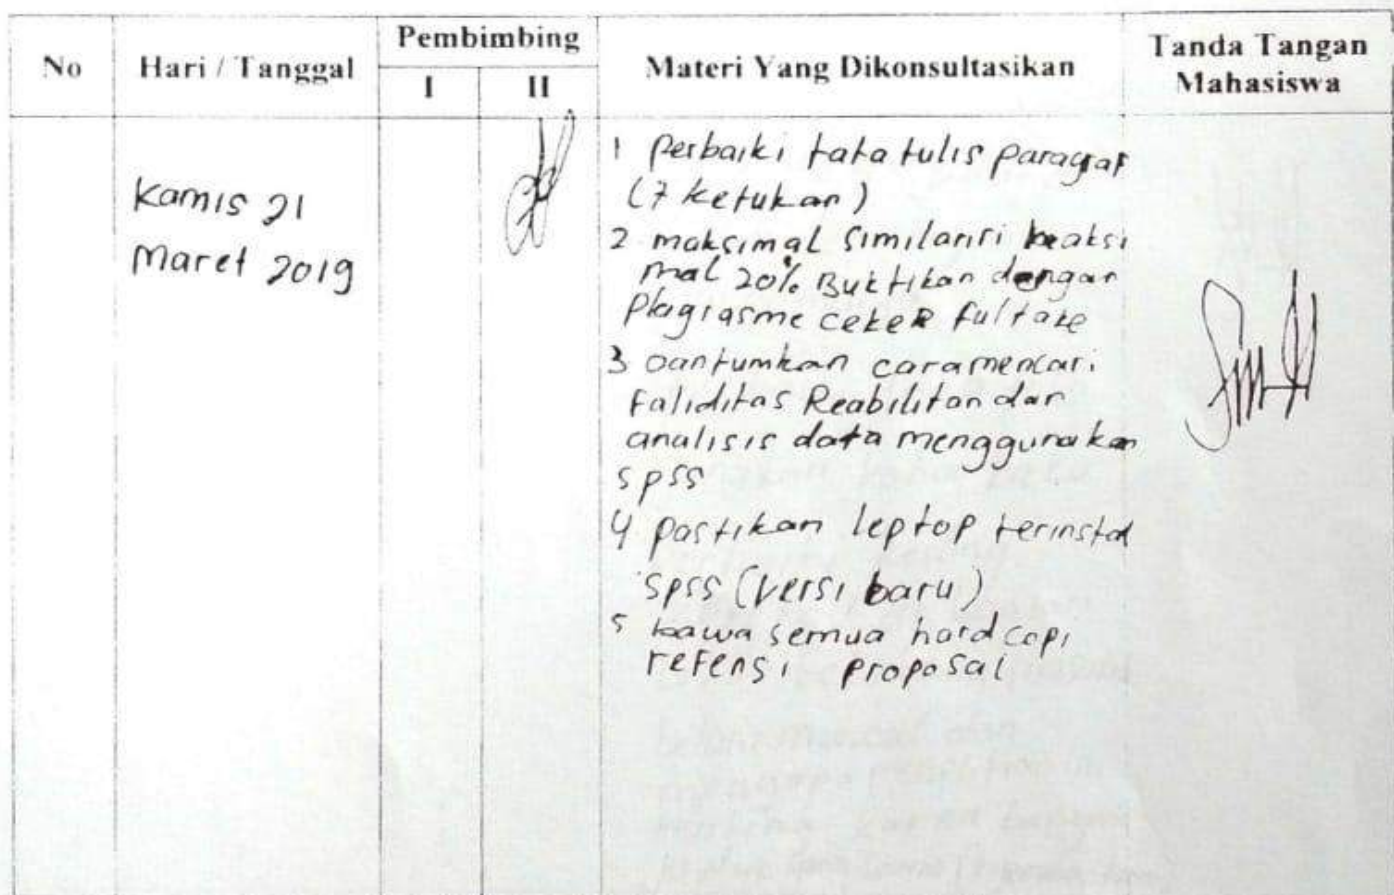 No
Hari / Tanggal
Pembimbing
I
II
Materi Yang Dikonsultasikan
Tanda Tangan
Mahasiswa
Kamis 21
Maret 2019
1 Perbaiki tata tulis paragraf
(7 ketukan)
2 maksimal similariti maksi
mal 20% Buktikan dengan
Plagiasme ceker fultake
3 cantumkan cara mencari
Faliditas Reabilitan dan
analisis data menggunakan
SPSS
4 pastikan leptop terinstal
SPSS (versi baru)
5 bawa semua hard copi
refensi proposal